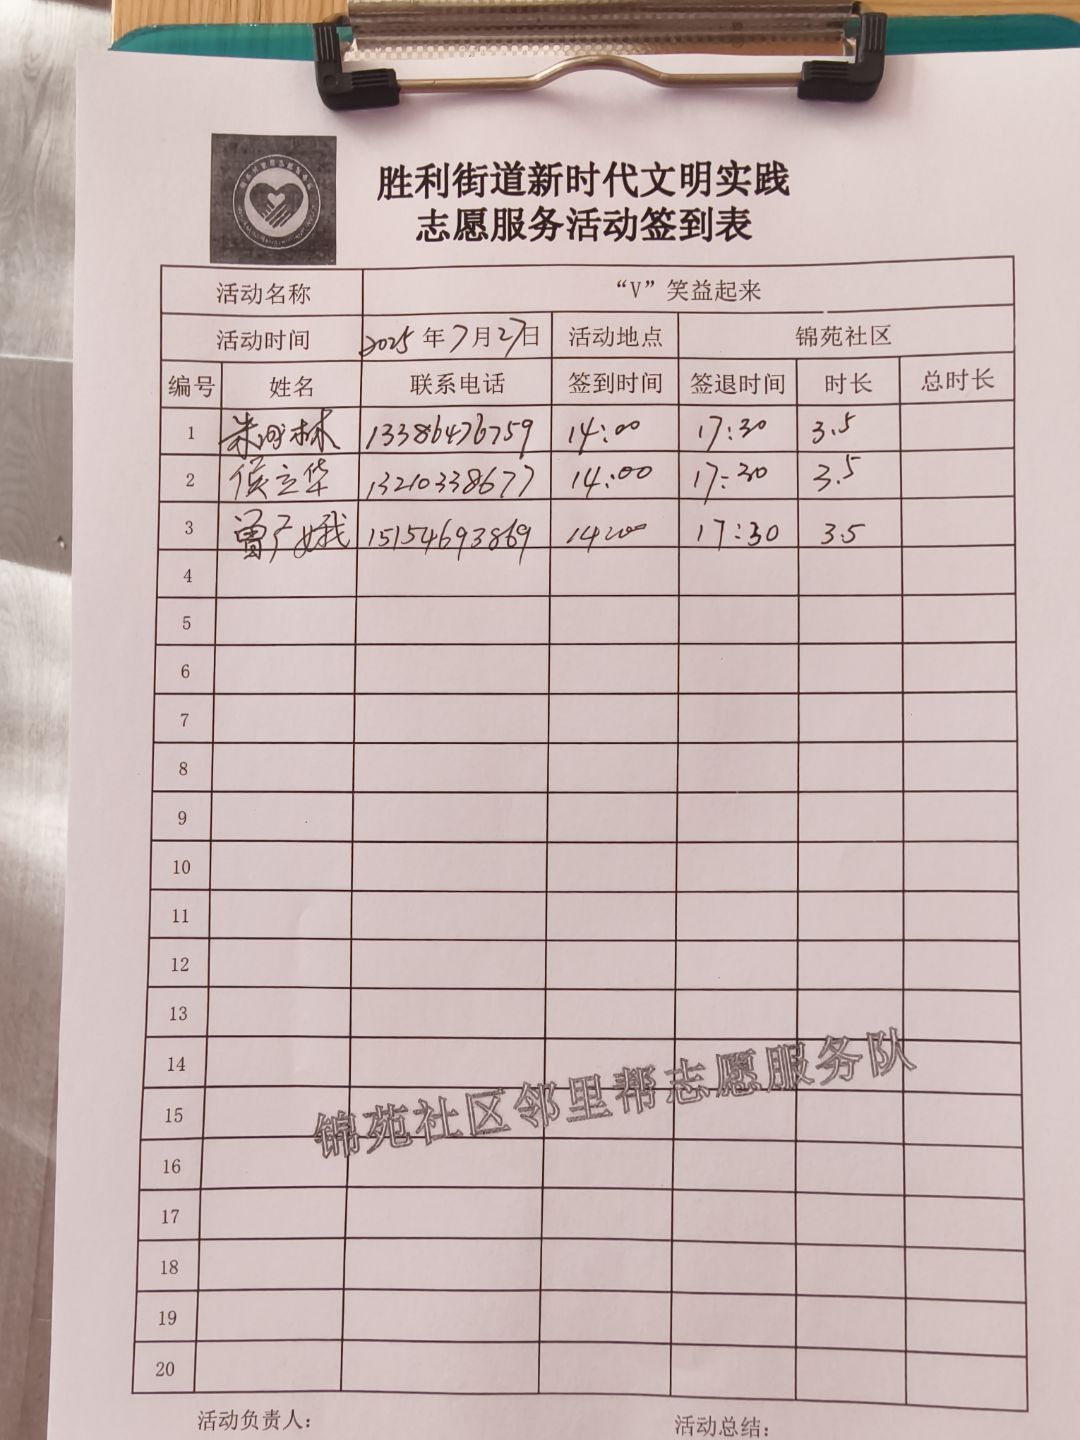 胜利街道新时代文明实践
志愿服务活动签到表
活动名称 “V”笑益起来
活动时间 2025年7月27日 活动地点 锦苑社区
编号 姓名 联系电话 签到时间 签退时间 时长 总时长
1 朱林 13386476759 14:00 17:30 3.5
2 侯立华 13210338677 14:00 17:30 3.5
3 曾广娥 15154693869 14:00 17:30 3.5
4
5
6
7
8
9
10
11
12
13
14
锦苑社区邻里帮志愿服务队
15
16
17
18
19
20
活动负责人: 活动总结: